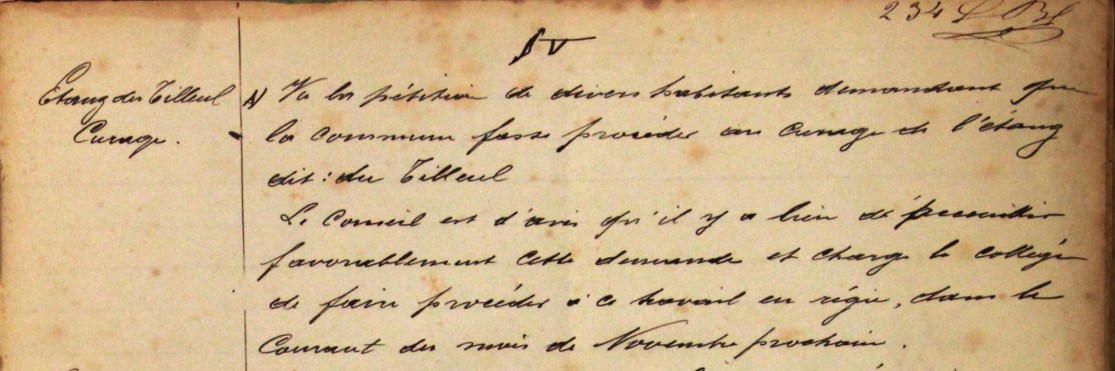 234
IV
Etang du Tilleul
Curage.
Vu la pétition de divers habitants demandant que
la commune fasse procéder au curage de l'étang
dit: du Tilleul
Le Conseil est d'avis qu'il y a lieu de
favorablement cette demande et charge le collège
de faire procéder à ce travail en régie, dans le
courant du mois de Novembre prochain.